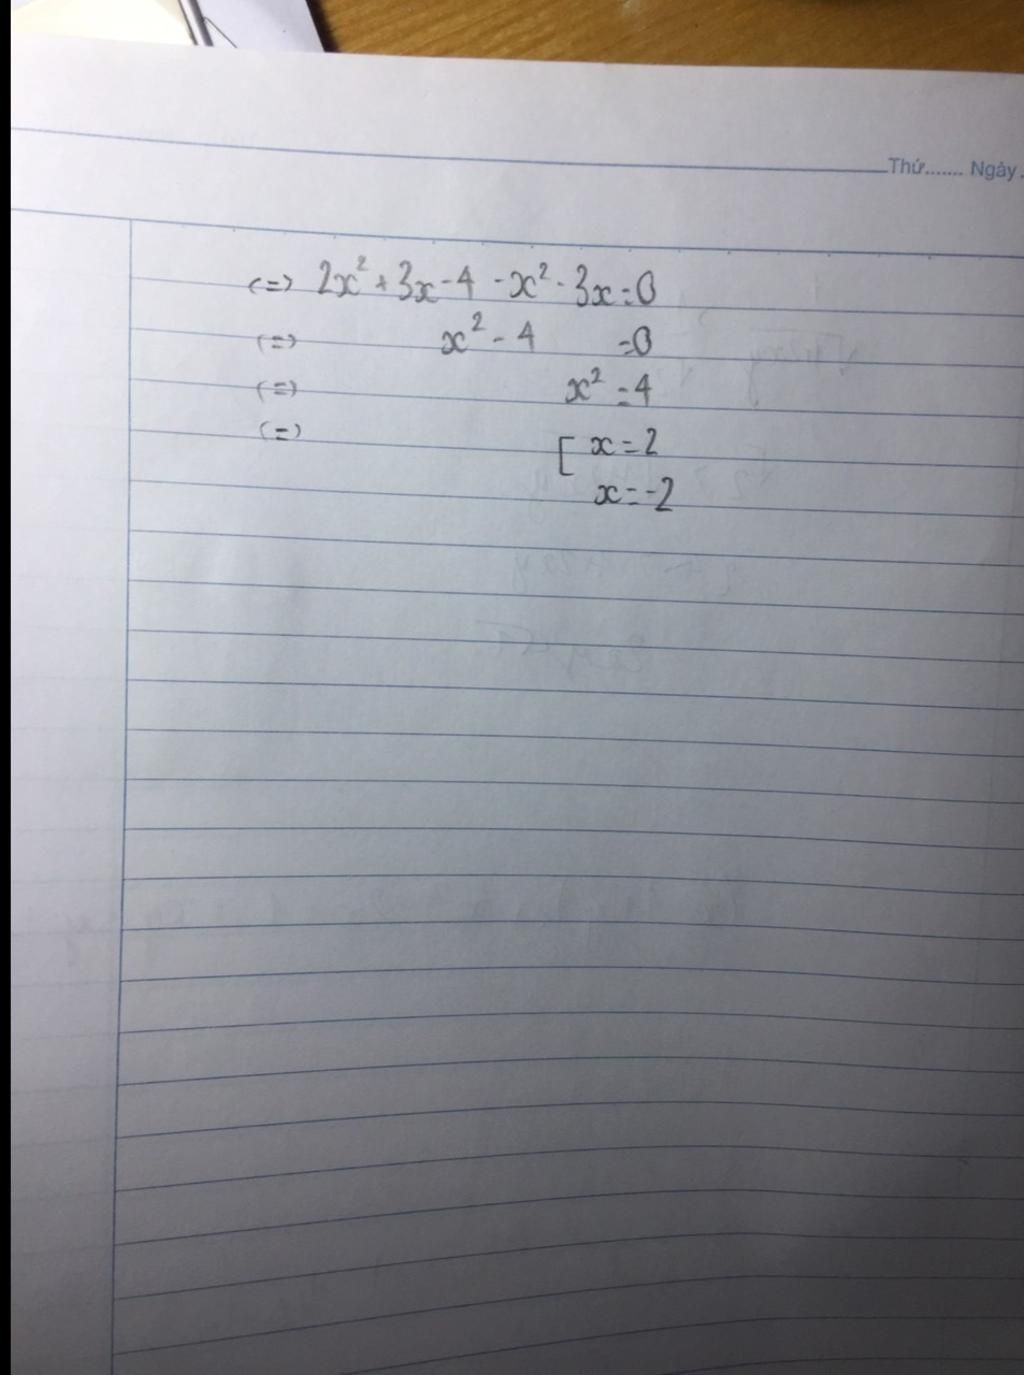 Thứ....... Ngày.
(=) 2x² + 3x - 4 - x² - 3x = 0
(=) x² - 4 = 0
(=) x² = 4
(=) [ x = 2
x = -2